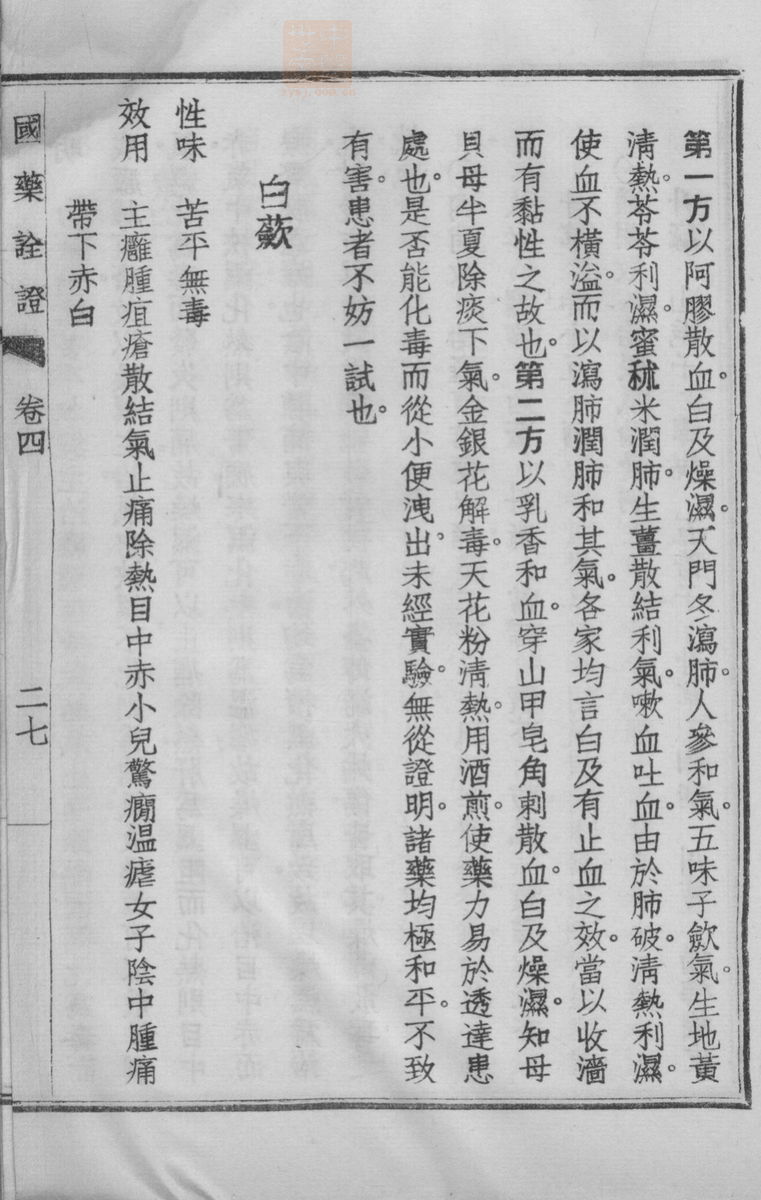 第一方以阿膠散血。白及燥濕。天門冬瀉肺。人參和氣。五味子歛氣。生地黃
清熱。苓苓利濕。蜜秫米潤肺。生薑散結利氣。嗽血吐血。由於肺破。清熱利濕。
使血不橫溢。而以瀉肺潤肺和其氣。各家均言白及有止血之效。當以收濇
而有黏性之故也。第二方以乳香和血。穿山甲皂角刺散血。白及燥濕。知母
貝母半夏除痰下氣。金銀花解毒。天花粉清熱。用酒煎。使藥力易於透達患
處也。是否能化毒而從小便洩出。未經實驗。無從證明。諸藥均極和平。不致
有害。患者不妨一試也。
白蘞
性味　苦平無毒
效用　主癰腫疽瘡散結氣止痛除熱目中赤小兒驚癇温瘧女子陰中腫痛
帶下赤白
國藥詮證　卷四　二七